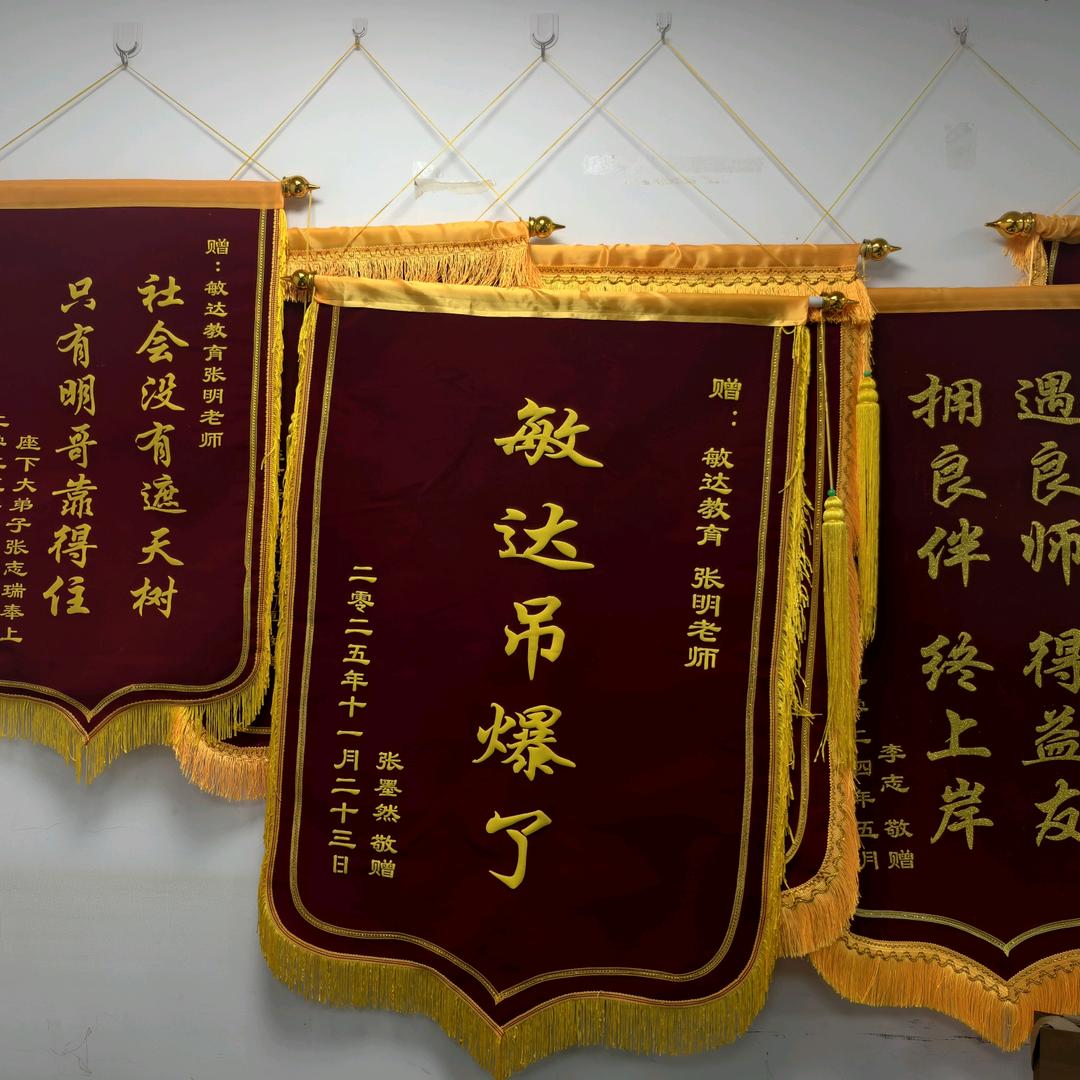 赠：敏达教育张明老师
社会没有遮天树
只有明哥靠得住
座下大弟子张志瑞奉上
赠： 敏达教育 张明老师
敏达吊爆了
张墨然 敬赠
二零二五年十一月二十三日
遇良师 得益友
拥良伴 终上岸
李志 敬赠
二四年五月